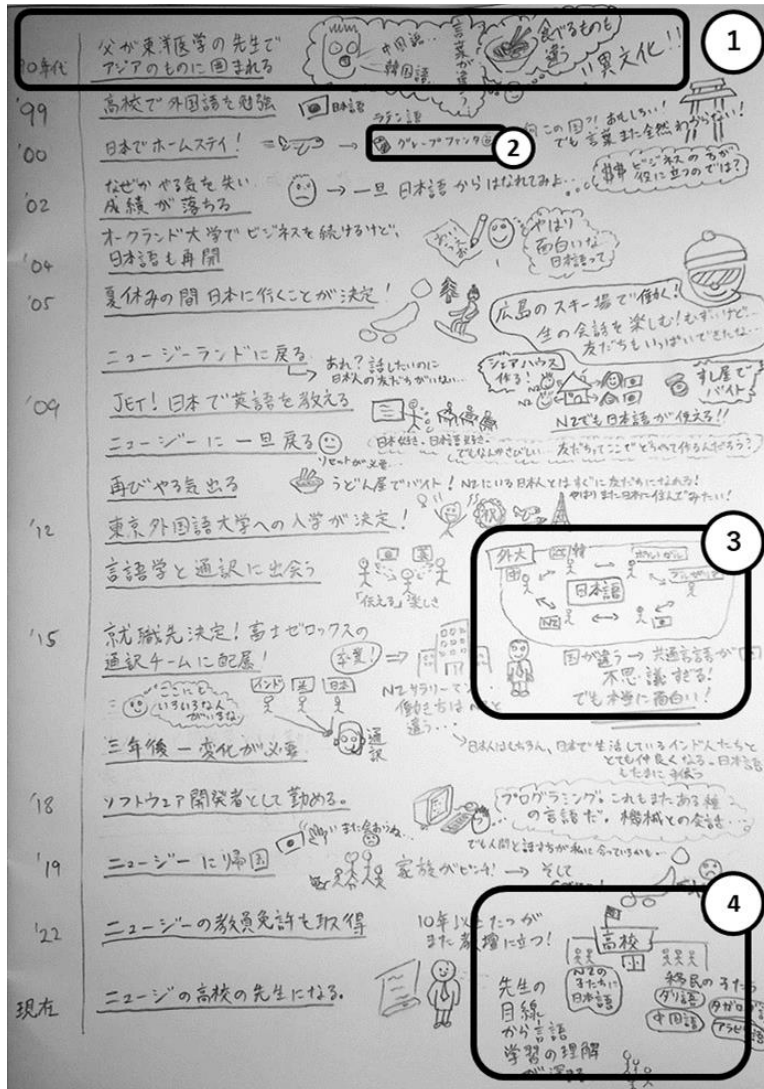 父が東洋医学の先生で
アジアのものに囲まれる
中国語…
韓国語
言葉が違う?
食べるものも
違う
異文化!!
1
90年代
'99
高校で外国語を勉強
日本語
ラテン語
'00
日本でホームステイ!
グレープファンタ
2
この国?!おもしろい!
でも言葉まだ全然わからない!
'02
なぜかやる気を失い
成績が落ちる
→一旦日本語からはなれてみよ…
ビジネスの方が
役に立つのでは?
'04
オークランド大学でビジネスを続けるけど、
日本語も再開
やはり
面白いな
日本語って
'05
夏休みの間日本に行くことが決定!
広島のスキー場で働く!
生の会話を楽しむ!むずいけど…
友だちもいっぱいできたな…
ニュージーランドに戻る
あれ?話したいのに
日本人の友だちがいない…
シェアハウス
作る!
NZ
すし屋で
バイト
NZでも日本語が使える!!
'09
JET!日本で英語を教える
ニュージーに一旦戻る
リセットが必要…
日本好き、日本語好き、
でもなんかさびしい… 友だちってここでどうやって作るんだろう?
再びやる気出る
うどん屋でバイト!NZにいる日本人とはすぐに友だちになれる!
やはりまた日本に住んでみたい!
'12
東京外国語大学への入学が決定!
言語学と通訳に出会う
「伝える」楽しさ
3
外大
韓
ポルトガル
中
ブルガリア
日本語
NZ
国が違う→共通言語が
不思議すぎる!
でも本当に面白い!
'15
就職先決定!富士ゼロックスの
通訳チームに配属!
卒業!
NZサラリーマン…
働き方は
違う…
ここにも
いろいろな人
がいるな
インド
日本
通訳
→日本人はもちろん、日本で生活しているインド人たちと
とても仲良くなる。日本語
三年後-変化が必要
'18
ソフトウェア開発者として勤める。
プログラミング。これもまたある種
の言語だ。機械との会話…
でも人間と話す方が私に合っているかも…
'19
ニュージーに帰国
また会おうね…
家族がピンチ!→そして
4
'22
ニュージーの教員免許を取得
10年以上たつが
また教壇に立つ!
高校
NZの
子たちに
日本語
移民の子たち
ダリ語
タガログ語
中国語
アラビア語
現在
ニュージの高校の先生になる。
先生の
目線
から言語
学習の理解
が深まる